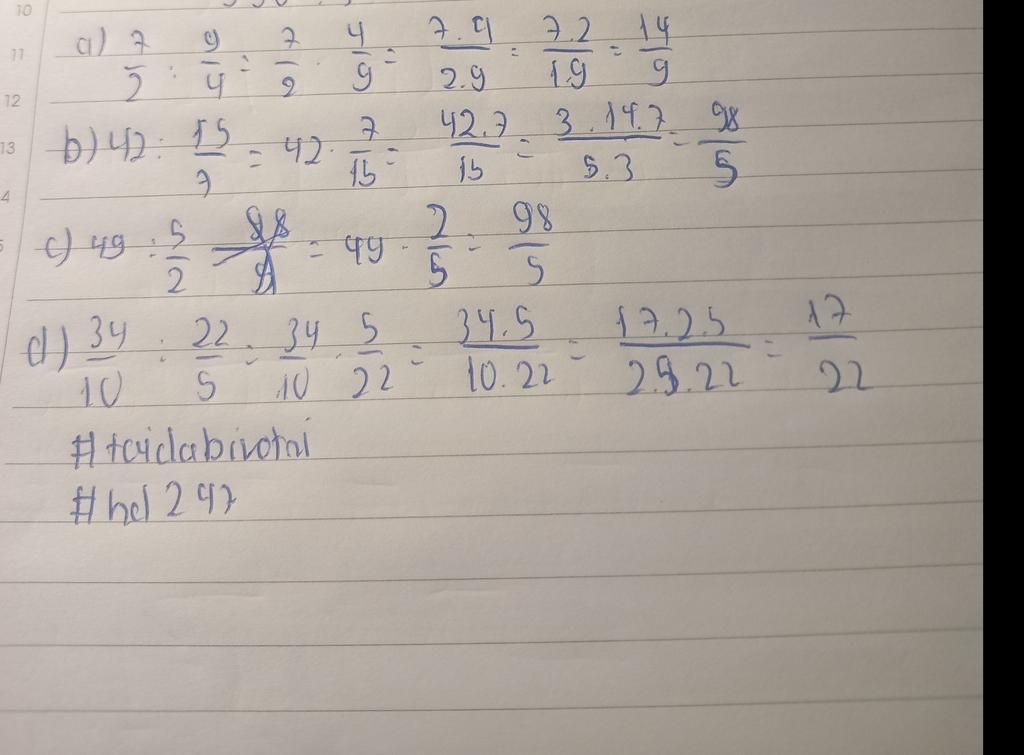 10
11
12
13
4
5
a) 7/2 : 9/4 = 7/2 . 4/9 = 7.4/2.9 = 7.2/1.9 = 14/9
b) 42 : 15/7 = 42 . 7/15 = 42.7/15 = 3.14.7/5.3 = 98/5
c) 49 : 5/2 = 49 . 2/5 = 98/5
d) 34/10 : 22/5 = 34/10 . 5/22 = 34.5/10.22 = 17.2.5/2.5.22 = 17/22
#toidabivotri
#hd247